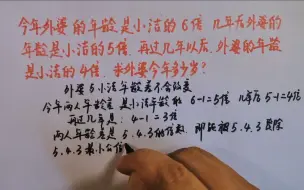 今年外婆的年龄是小洁的6倍,几年后外婆的
年龄是小洁的5倍,再过几年以后,外婆的年龄
是小洁的4倍,求外婆今年多少岁?
外婆与小洁年龄差不会改变
今年两人年龄差是小洁年龄的 6-1=5倍 几年后 5-1=4倍
再过几年是:4-1=3倍
两人年龄差是5.4.3的倍数,即能被5.4.3整除
5.4.3最小公倍